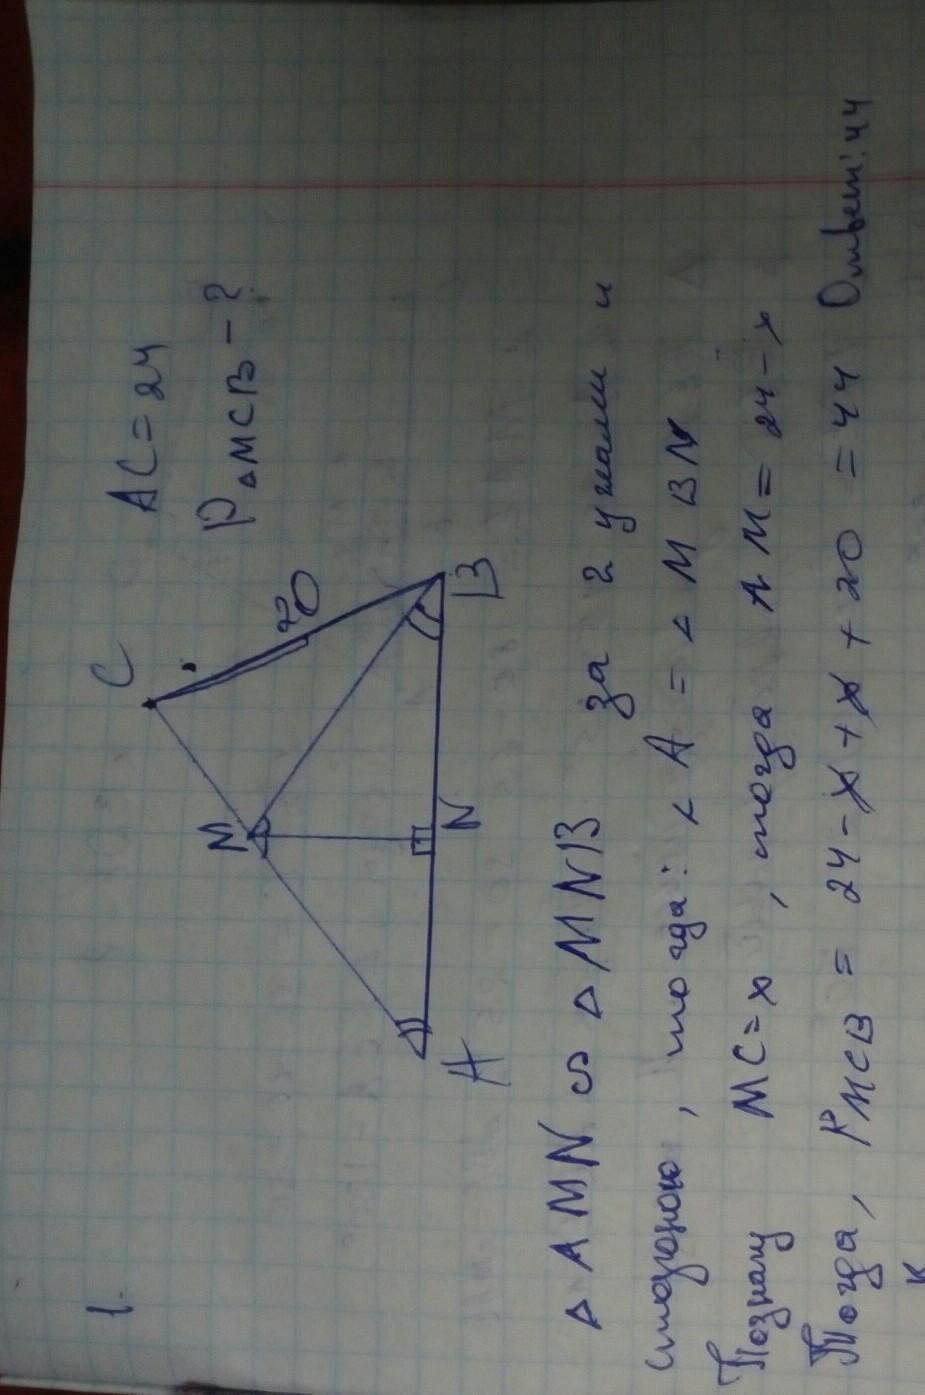 1.
C
AC = 24
M
20
P△MCB - ?
A
N
B
△ AMN ∽ △ MNB за 2 углами и
стороною, тогда: ∠ A = ∠ MBN
Позначу MC = x, тогда AM = 24 - x
Тогда, PMCB = 24 - x + x + 20 = 44 Ответ: 44